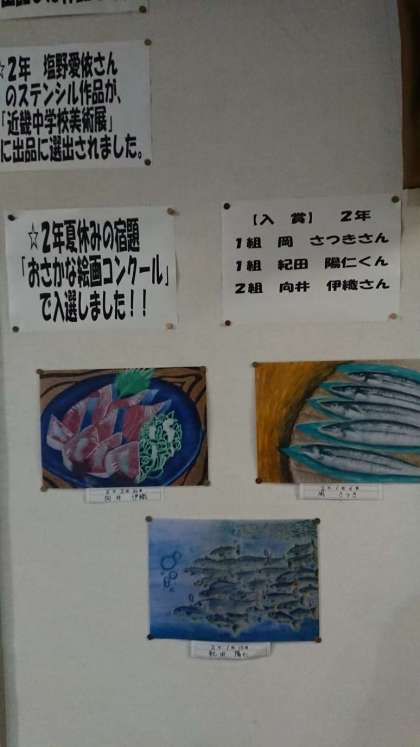 ☆2年 塩野愛依さん
のステンシル作品が、
「近畿中学校美術展」
に出品に選出されました。
☆2年夏休みの宿題
「おさかな絵画コンクール」
で入選しました！！
【入 賞】 2年
1組 岡 さつきさん
1組 紀田 陽仁くん
2組 向井 伊織さん
向井 伊織
岡 さつき
紀田 陽仁